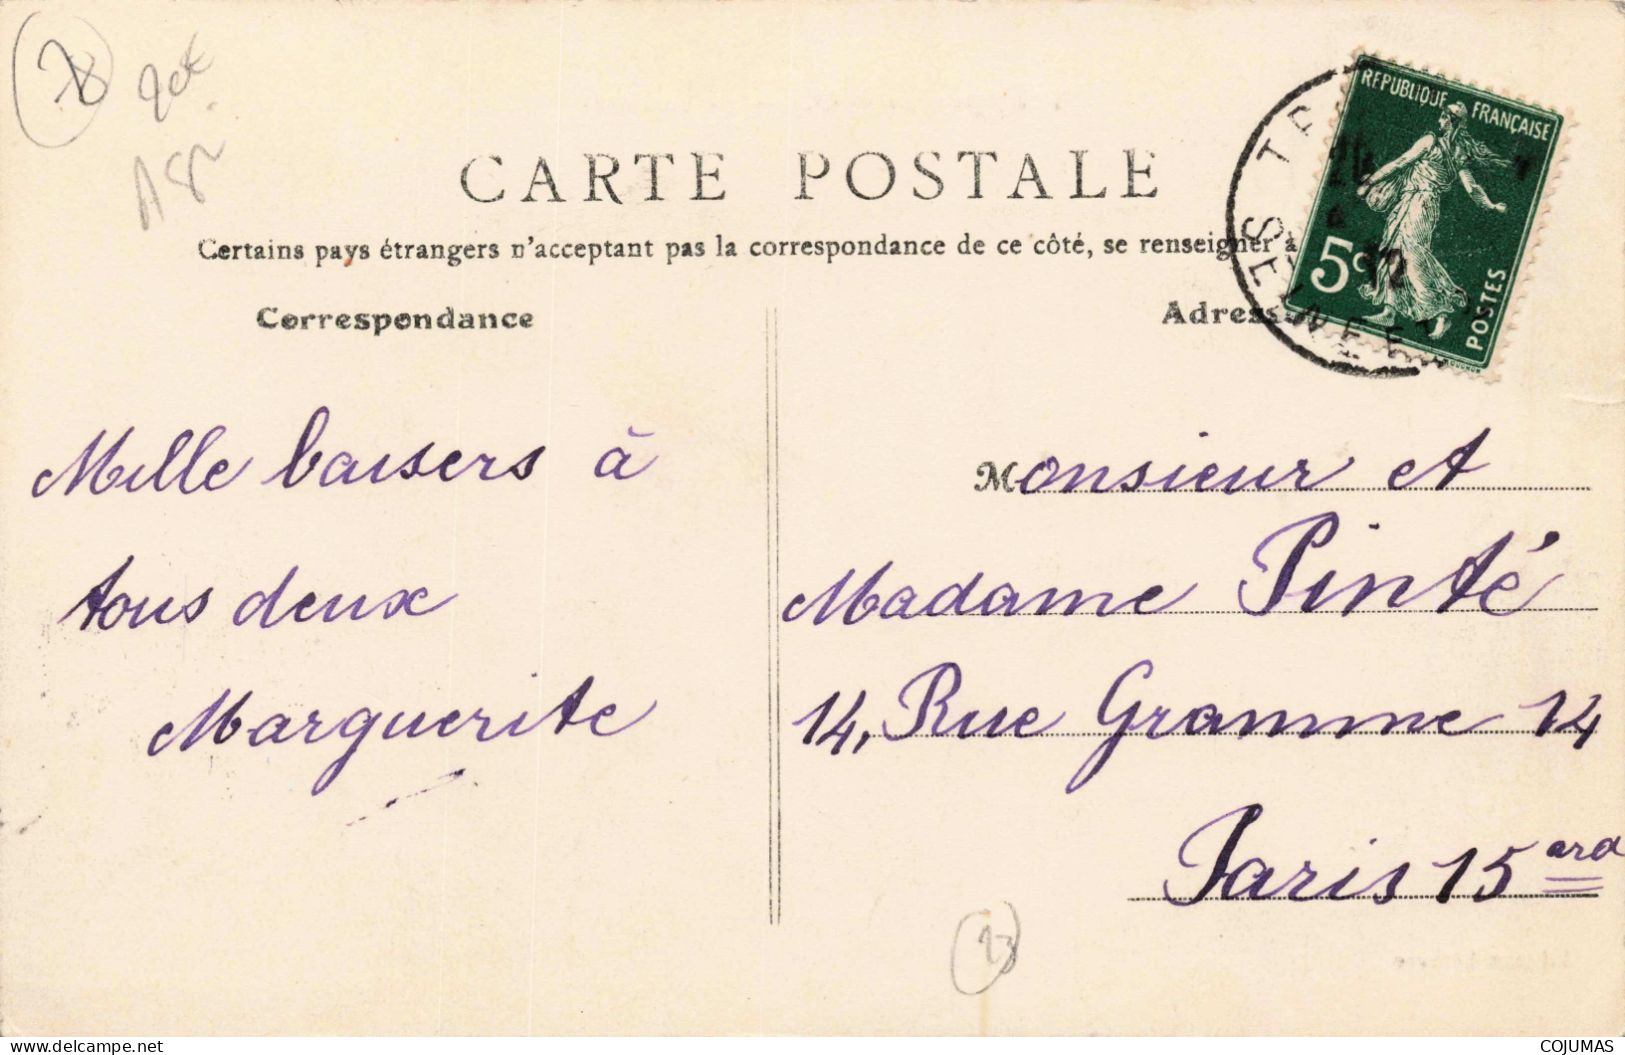 CARTE POSTALE
Certains pays étrangers n'acceptant pas la correspondance de ce côté, se renseigner à
Correspondance
Adresse
REPUBLIQUE FRANÇAISE
5c
POSTES
Mille baisers à
tous deux
Marguerite
Monsieur et
Madame Pinté
14, Rue Gramme 14
Paris 15 ard
23
www.delcampe.net
COJUMAS